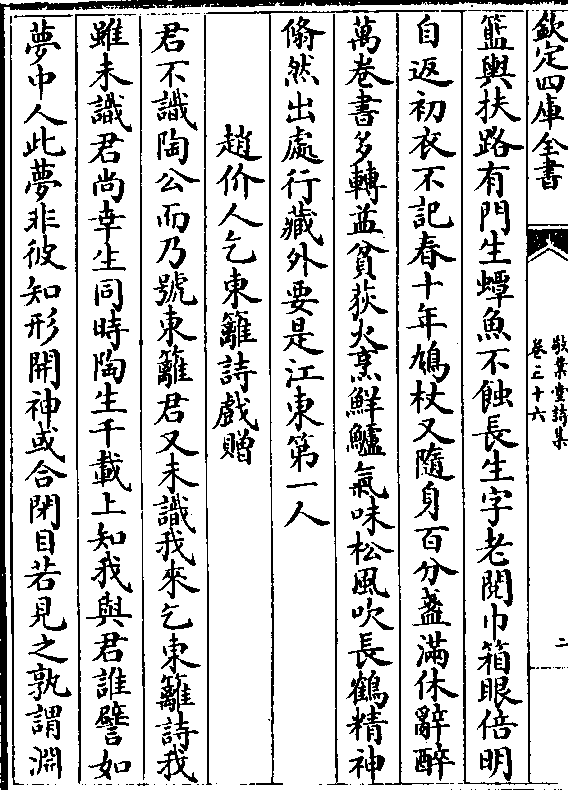 欽定四庫全書
敬業堂詩集
卷三十六
二
籃輿扶路有門生蟫魚不蝕長生字老閱巾箱眼倍明
自返初衣不記春十年鳩杖又隨身百分盞滿休辭醉
萬卷書多轉益貧荻火烹鮮鱸氣味松風吹長鶴精神
翛然出處行藏外要是江東第一人
趙价人乞東籬詩戲贈
君不識陶公而乃號東籬君又未識我來乞東籬詩我
雖未識君尚幸生同時陶生千載上知我與君誰譬如
夢中人此夢非彼知形開神或合閉目若見之孰謂淵